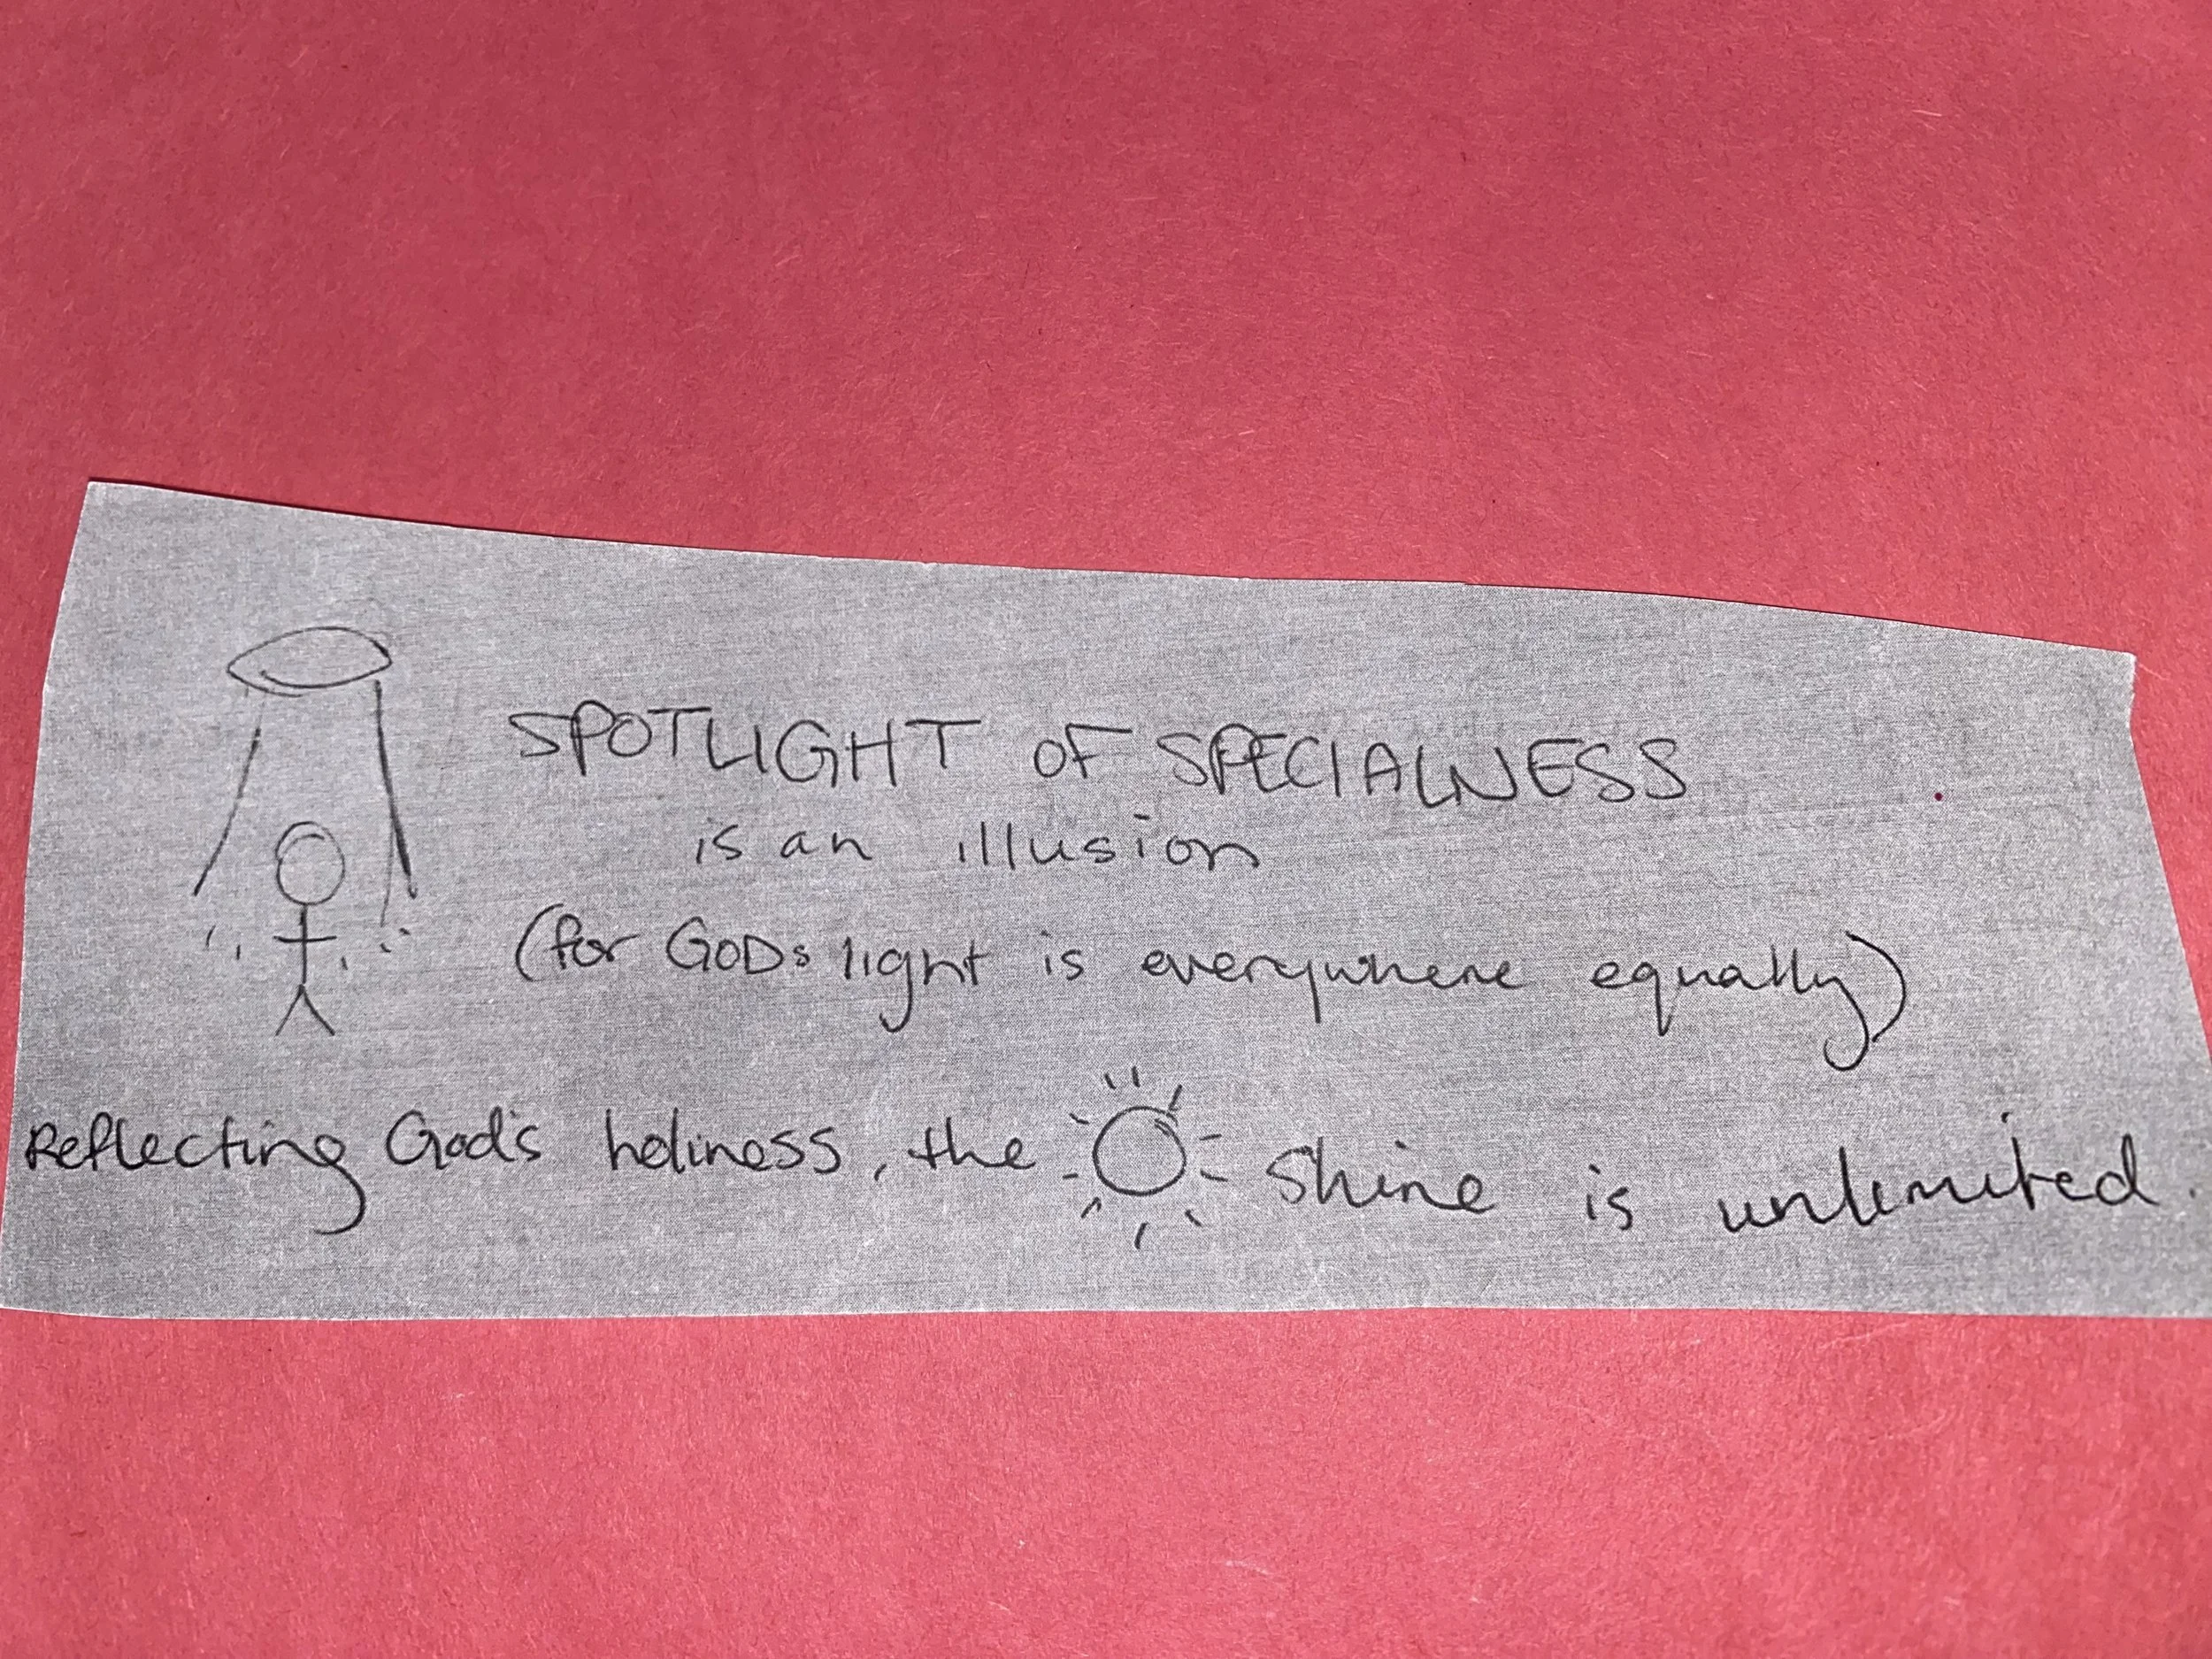 SPOTLIGHT OF SPECIALNESS
is an illusion
(for GODs light is everywhere equally)
Reflecting God's holiness, the shine is unlimited.